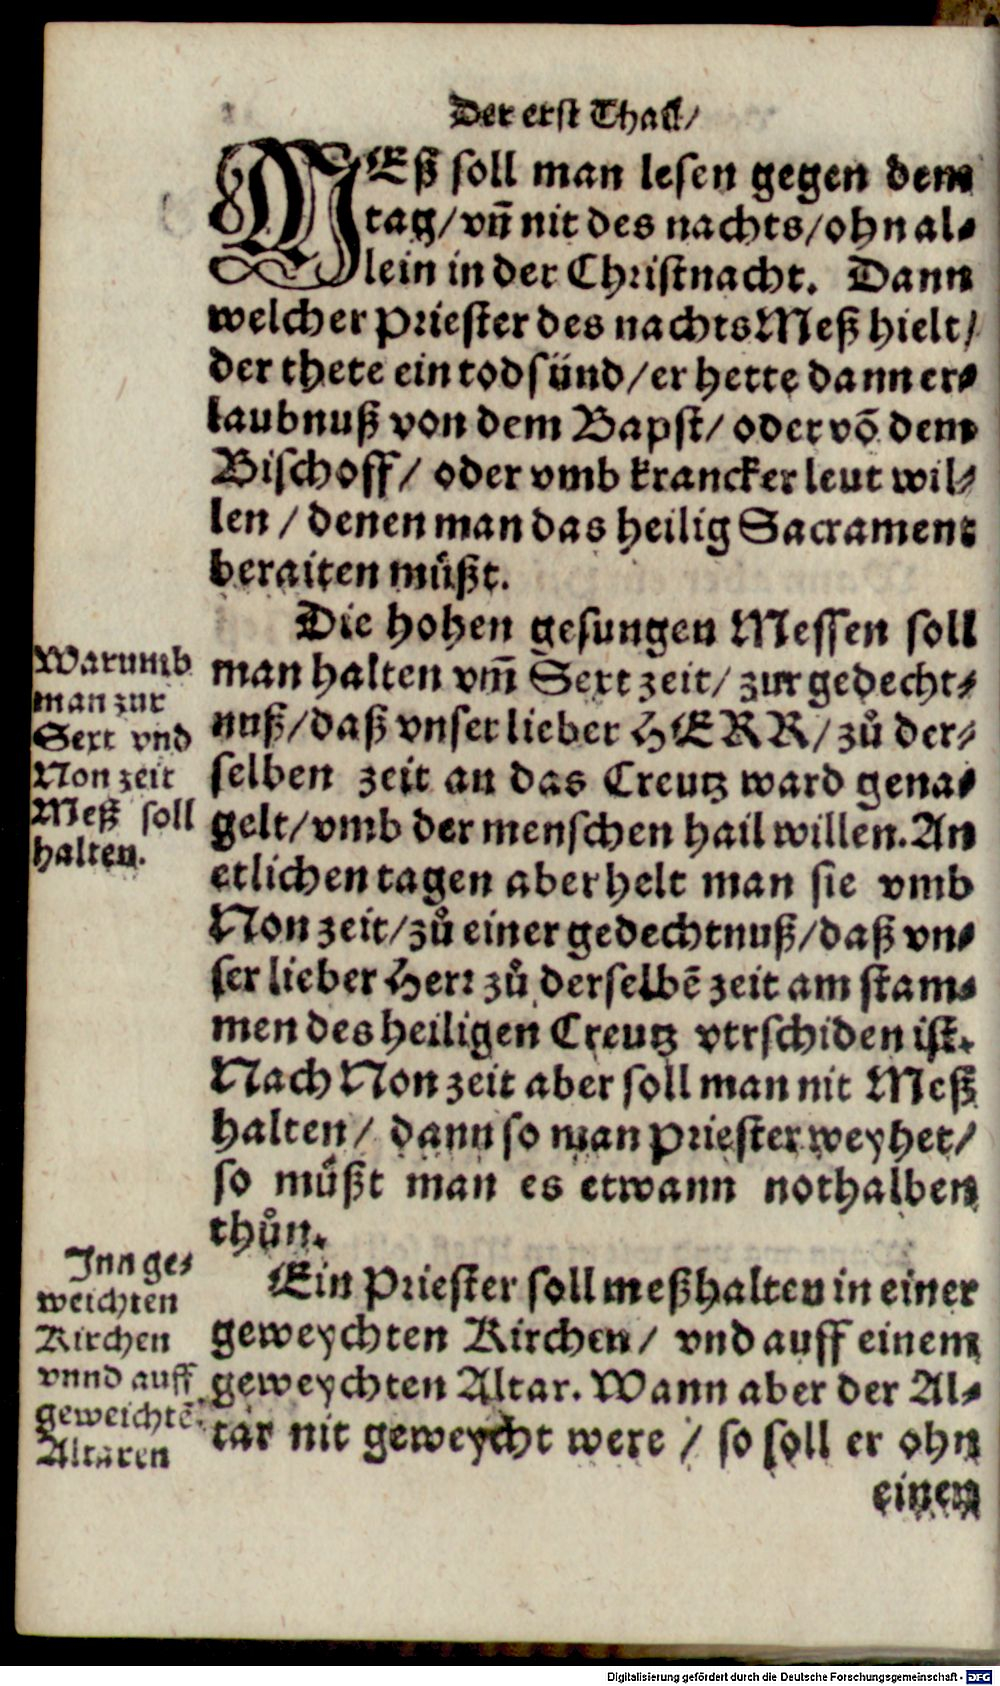 Der erst Thail/
MEß soll man lesen gegen dem
tag/ vñ nit des nachts/ ohn al⸗
lein in der Christnacht. Dann
welcher priester des nachts Meß hielt/
der thete ein todsünd/ er hette dann er⸗
laubnuß von dem Bapst/ oder võ dem
Bischoff/ oder vmb krancker leut wil⸗
len/ denen man das heilig Sacrament
beraiten müßt.
Die hohen gesungen Messen soll
man halten vm̃ Sext zeit/ zur gedecht⸗
nuß/ daß vnser lieber HERR/ zů der⸗
selben zeit an das Creutz ward gena⸗
gelt/ vmb der menschen hail willen. An
etlichen tagen aber helt man sie vmb
Non zeit/ zů einer gedechtnuß/ daß vn⸗
ser lieber Herr zů derselbẽ zeit am stam⸗
men des heiligen Creutz vtrschiden ist.
Nach Non zeit aber soll man nit Meß
halten/ dann so man priester weyhet/
so müßt man es etwann nothalben
thůn.
Ein Priester soll meß halten in einer
geweychten Kirchen/ vnd auff einem
geweychten Altar. Wann aber der Al⸗
tar nit geweycht were/ so soll er ohn
einen
Warumb
man zur
Sext vnd
Non zeit
Meß soll
halten.
Inn ge⸗
weichten
Kirchen
vnnd auff
geweichtẽ
Altaren
Digitalisierung gefördert durch die Deutsche Forschungsgemeinschaft - DFG